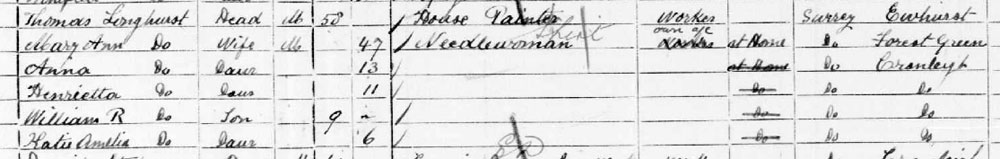 Thomas Longhurst Head M 58 House Painter Worker Surrey Ewhurst
Mary Ann Do Wife M 47 Needlewoman own a/c at Home Do Forest Green
Anna Do Daur 13 at Home Do Cranleigh
Henrietta Do Daur 11 Do Do Do
William R Do Son 9 Do Do Do
Katie Amelia Do Daur 6 Do Do Do